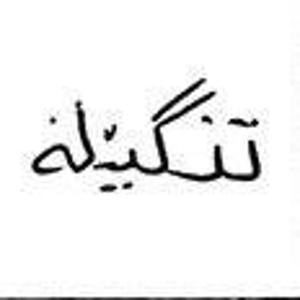 تنگێله